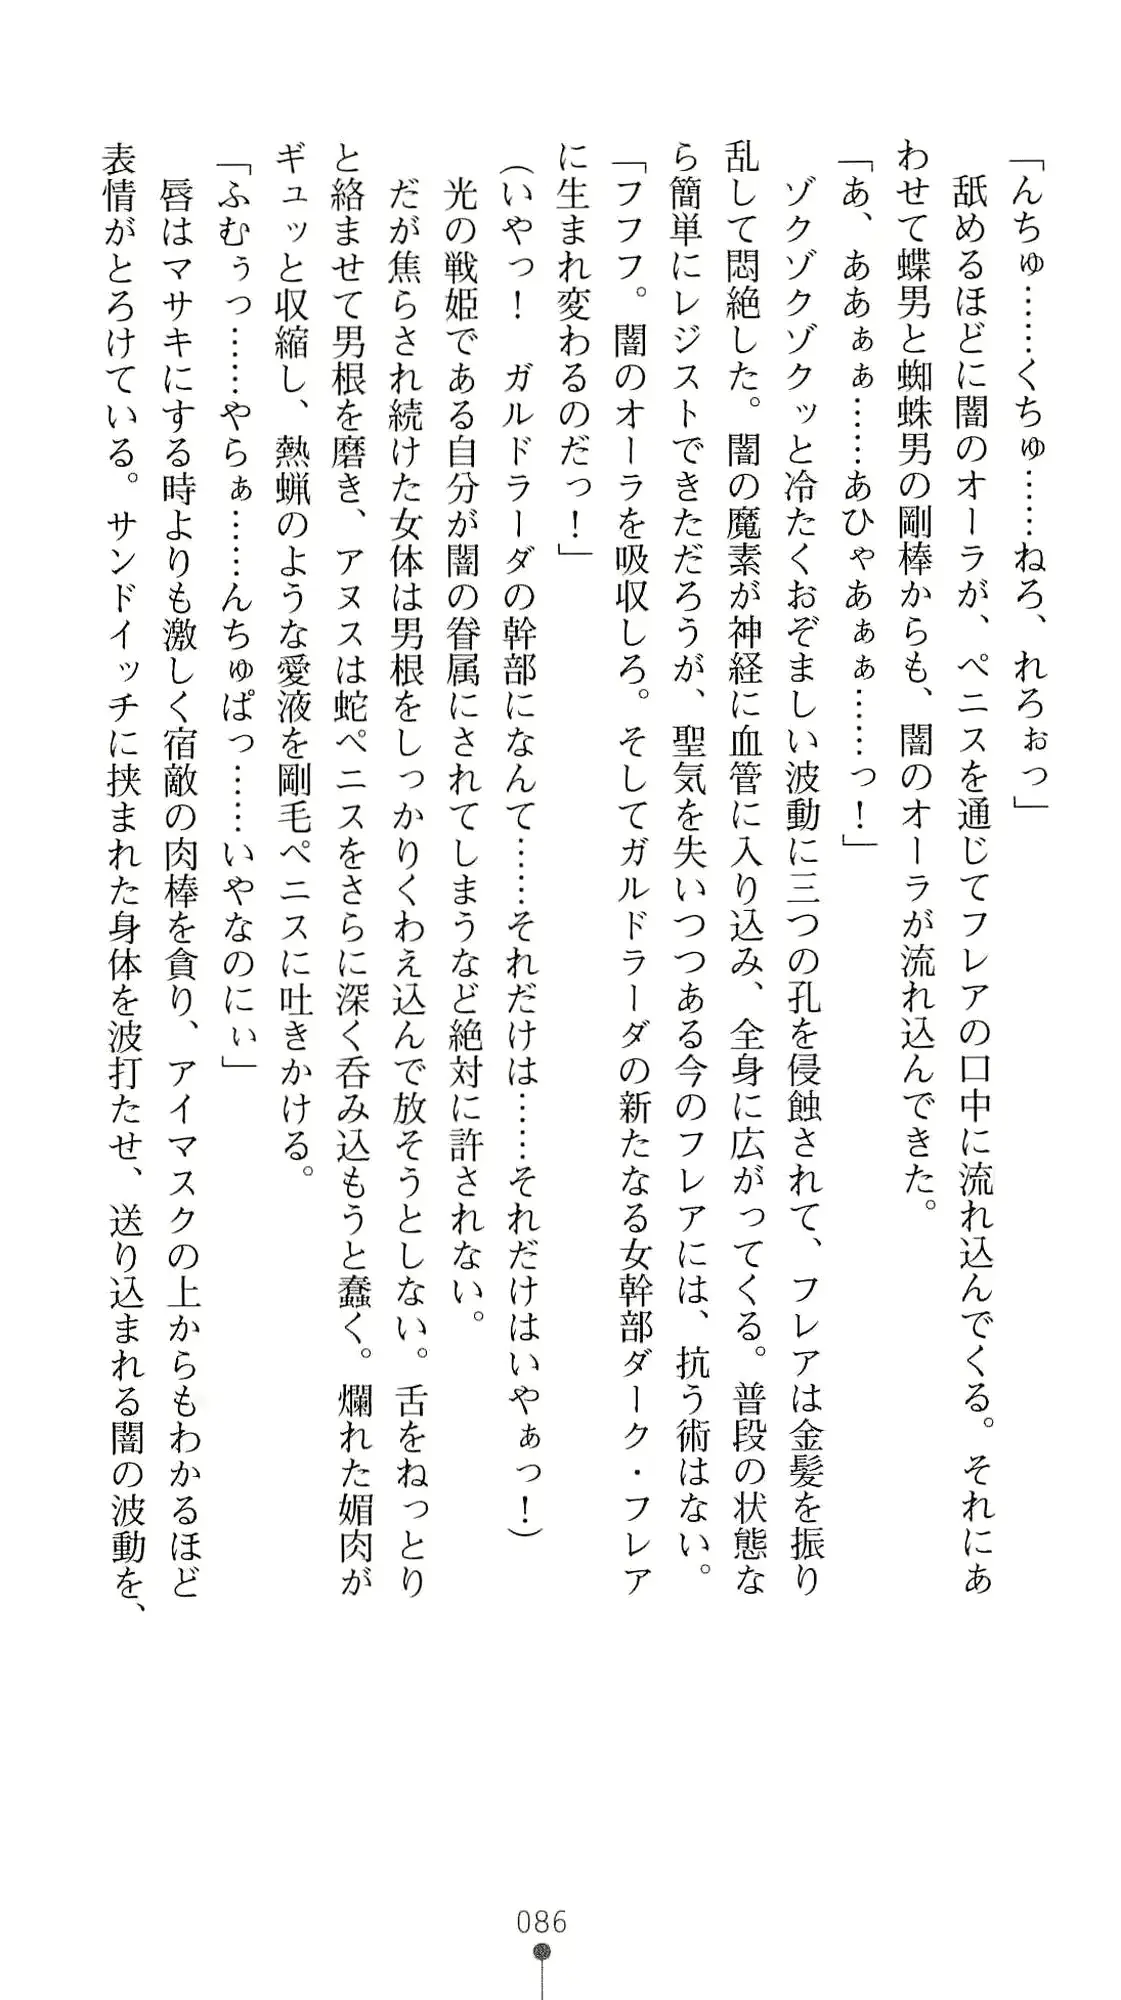 「んちゅ……くちゅ……ねろ、れろぉっ」
　舐めるほどに闇のオーラが、ペニスを通じてフレアの口中に流れ込んでくる。それにあ
わせて蝶男と蜘蛛男の剛棒からも、闇のオーラが流れ込んできた。
「あ、ああぁぁ……あひゃあぁぁ……っ！」
　ゾクゾクゾクッと冷たくおぞましい波動に三つの孔を侵蝕されて、フレアは金髪を振り
乱して悶絶した。闇の魔素が神経に血管に入り込み、全身に広がってくる。普段の状態な
ら簡単にレジストできただろうが、聖気を失いつつある今のフレアには、抗う術はない。
「フフフ。闇のオーラを吸収しろ。そしてガルドラーダの新たなる女幹部ダーク・フレア
に生まれ変わるのだっ！」
（いやっ！　ガルドラーダの幹部になんて……それだけは……それだけはいやぁっ！）
　光の戦姫である自分が闇の眷属にされてしまうなど絶対に許されない。
　だが焦らされ続けた女体は男根をしっかりくわえ込んで放そうとしない。舌をねっとり
と絡ませて男根を磨き、アヌスは蛇ペニスをさらに深く呑み込もうと蠢く。爛れた媚肉が
ギュッと収縮し、熱蝋のような愛液を剛毛ペニスに吐きかける。
「ふむぅっ……やらぁ……んちゅぱっ……いやなのにぃ」
　唇はマサキにする時よりも激しく宿敵の肉棒を貪り、アイマスクの上からもわかるほど
表情がとろけている。サンドイッチに挟まれた身体を波打たせ、送り込まれる闇の波動を、
086